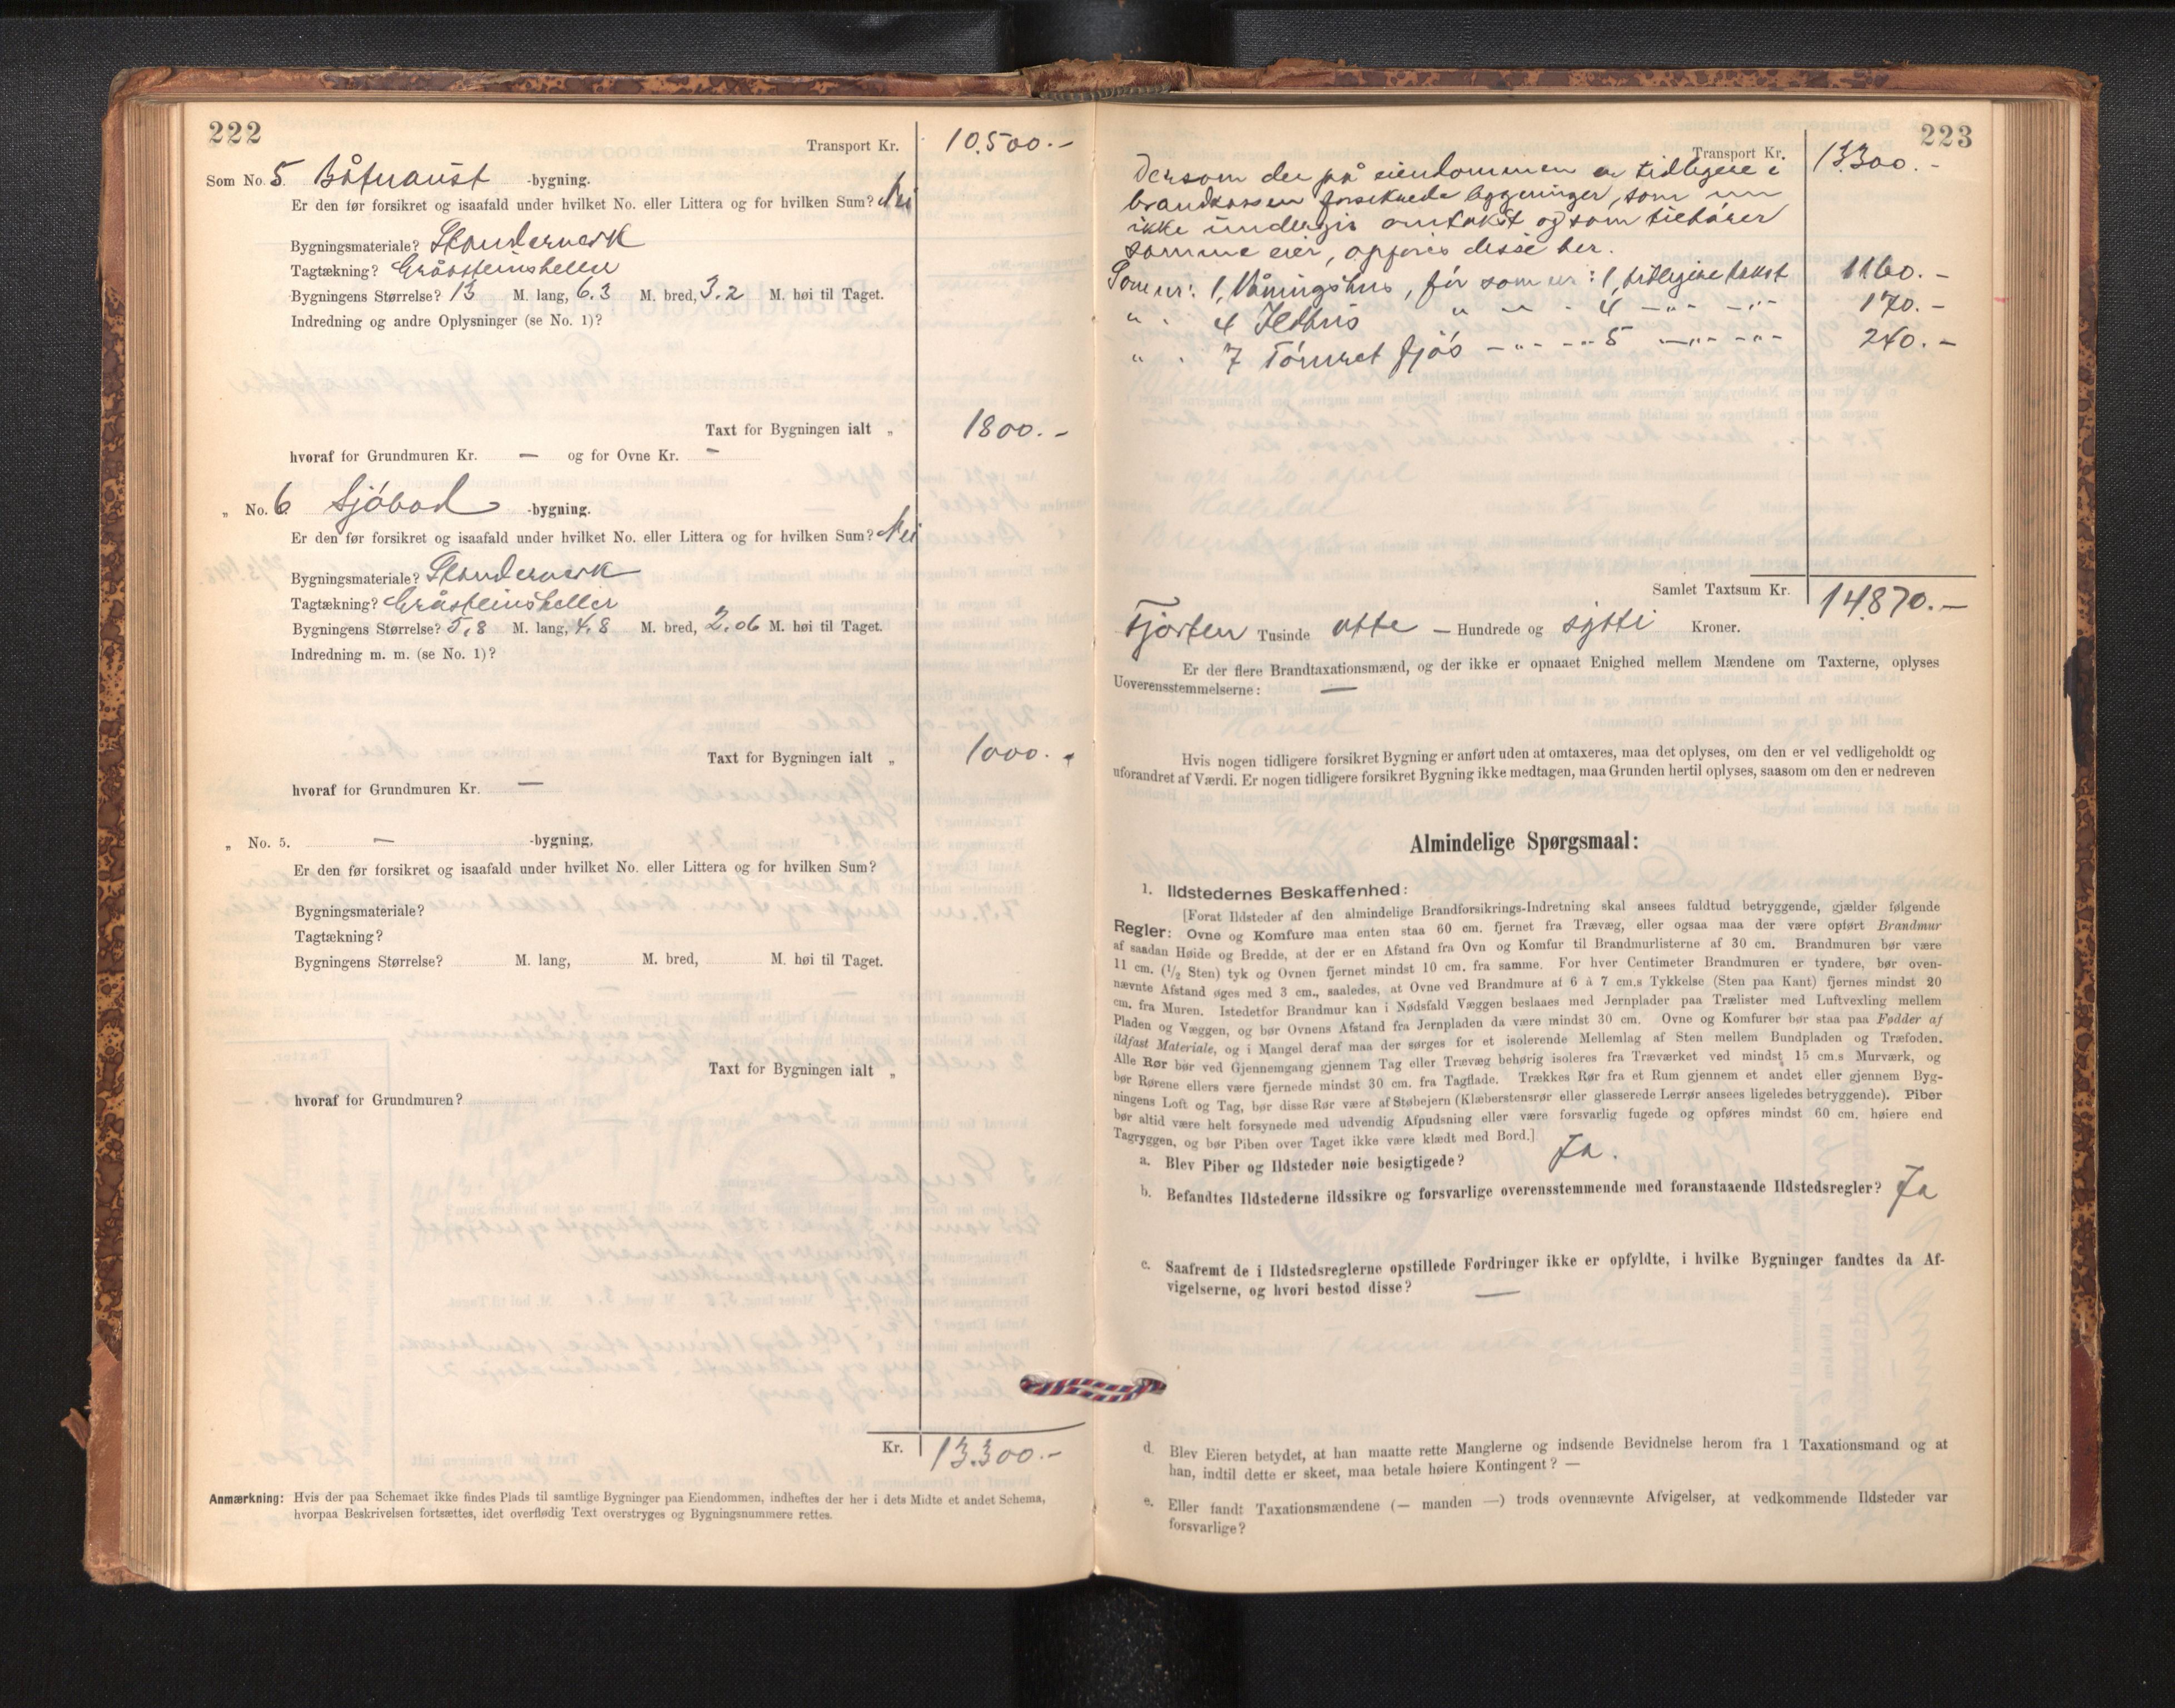 222
Transport Kr. 10.500.-
Som No. 5. Båtnaust -bygning.
Er den før forsikret og isaafald under hvilket No. eller Littera og for hvilken Sum? Nei
Bygningsmateriale? Stenderverk
Tagtækning? Gråsteinsheller
Bygningens Størrelse? 13 M. lang, 6.3 M. bred, 3.2 M. høi til Taget.
Indredning og andre Oplysninger (se No. 1)?
Taxt for Bygningen ialt „ 1800.-
hvoraf for Grundmuren Kr. — og for Ovne Kr. —
„ No. 6. Sjóbod -bygning.
Er den før forsikret og isaafald under hvilket No. eller Littera og for hvilken Sum? Nei
Bygningsmateriale? Stenderverk
Tagtækning? Gråsteinsheller
Bygningens Størrelse? 5,8 M. lang, 4,8 M. bred, 2.06 M. høi til Taget.
Indredning m. m. (se No. 1)?
Taxt for Bygningen ialt „ 1000.-
hvoraf for Grundmuren Kr. —
„ No. 5. — -bygning,
Er den før forsikret og isaafald under hvilket No. eller Littera og for hvilken Sum?
Bygningsmateriale?
Tagtækning?
Bygningens Størrelse? M. lang, M. bred, M. høi til Taget.
Taxt for Bygningen ialt „
hvoraf for Grundmuren?
Kr. 13.300.-
Anmærkning: Hvis der paa Schemaet ikke findes Plads til samtlige Bygninger paa Eiendommen, indheftes der her i dets Midte et andet Schema,
hvorpaa Beskrivelsen fortsættes, idet overflødig Text overstryges og Bygningsnummere rettes.
223
Transport Kr. 13.300.-
Dersom der på eiendommen er tidligere i
brandkassen forsikrede bygninger, som nu
ikke undergis omtakst og som tilhører
samme eier, opføres disse her.
Som nr: 1, Våningshus, før som nr: 1, tidligere takst 1160.-
" . 4 Ildhus " " - 4 -"- -"- 170.-
" . 7 Tómret fjós -"- -"- 5 -"- -"- 240.-
Samlet Taxtsum Kr. 14.870.-
Fjorten Tusinde otte — Hundrede og sytti Kroner.
Er der flere Brandtaxationsmænd, og der ikke er opnaaet Enighed mellem Mændene om Taxterne, oplyses
Uoverensstemmelserne: —
Hvis nogen tidligere forsikret Bygning er anført uden at omtaxeres, maa det oplyses, om den er vel vedligeholdt og
uforandret af Værdi. Er nogen tidligere forsikret Bygning ikke medtagen, maa Grunden hertil oplyses, saasom om den er nedreven
Almindelige Spørgsmaal:
1. Ildstedernes Beskaffenhed:
[Forat Ildsteder af den almindelige Brandforsikrings-Indretning skal ansees fuldtud betryggende, gjælder følgende
Regler: Ovne og Komfure maa enten staa 60 cm. fjernet fra Trævæg, eller ogsaa maa der være opført Brandmur
af saadan Høide og Bredde, at der er en Afstand fra Ovn og Komfur til Brandmurlisterne af 30 cm. Brandmuren bør være
11 cm. (1/2 Sten) tyk og Ovnen fjernet mindst 10 cm. fra samme. For hver Centimeter Brandmuren er tyndere, bør oven-
nævnte Afstand øges med 3 cm., saaledes, at Ovne ved Brandmure af 6 à 7 cm.s Tykkelse (Sten paa Kant) fjernes mindst 20
cm. fra Muren. Istedetfor Brandmur kan i Nødsfald Væggen beslaaes med Jernplader paa Trælister med Luftvexling mellem
Pladen og Væggen, og bør Ovnens Afstand fra Jernpladen da være mindst 30 cm. Ovne og Komfurer bør staa paa Fødder af
ildfast Materiale, og i Mangel deraf maa der sørges for et isolerende Mellemlag af Sten mellem Bundpladen og Træfoden.
Alle Rør bør ved Gjennemgang gjennem Tag eller Trævæg behørig isoleres fra Træværket ved mindst 15 cm.s Murværk, og
bør Rørene ellers være fjernede mindst 30 cm. fra Tagflade. Trækkes Rør fra et Rum gjennem et andet eller gjennem Byg-
ningens Loft og Tag, bør disse Rør være af Støbejern (Klæberstensrør eller glasserede Lerrør ansees ligeledes betryggende). Piber
bør altid være helt forsynede med udvendig Afpudsning eller være forsvarlig fugede og opføres mindst 60 cm. høiere end
Tagryggen, og bør Piben over Taget ikke være klædt med Bord.]
a. Blev Piber og Ildsteder nøie besigtigede? Ja.
b. Befandtes Ildstederne ildssikre og forsvarlige overensstemmende med foranstaaende Ildstedsregler? Ja
c. Saafremt de i Ildstedsreglerne opstillede Fordringer ikke er opfyldte, i hvilke Bygninger fandtes da Af-
vigelserne, og hvori bestod disse? —
d. Blev Eieren betydet, at han maatte rette Manglerne og indsende Bevidnelse herom fra 1 Taxationsmand og at
han, indtil dette er skeet, maa betale høiere Kontingent? —
e. Eller fandt Taxationsmændene (— manden —) trods ovennævnte Afvigelser, at vedkommende Ildsteder var
forsvarlige?